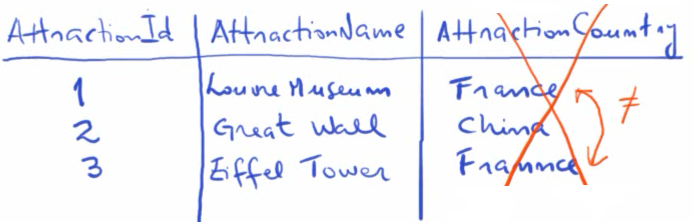 AttractionId AttractionName AttractionCountry
1 Louvre Museum France
2 Great Wall China
3 Eiffel Tower Frannce
≠